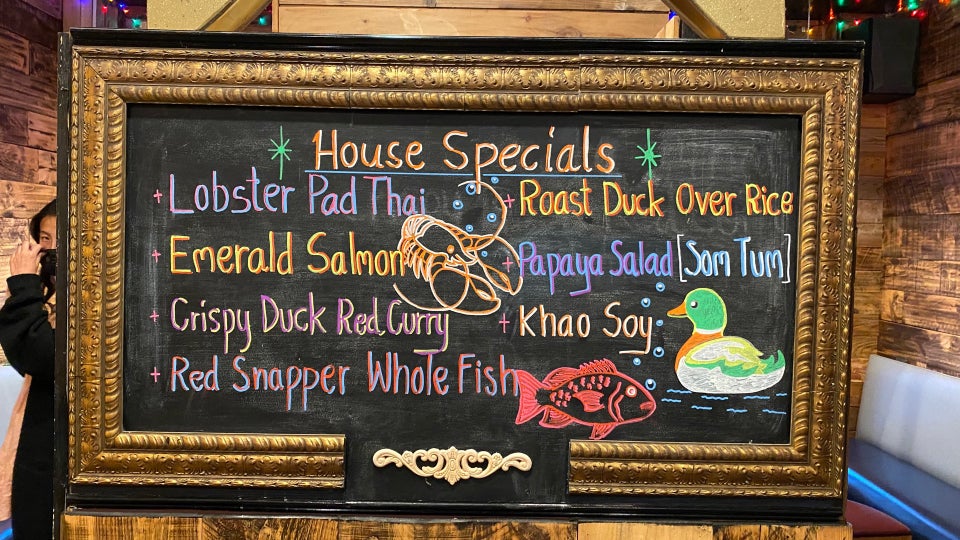 House Specials
+ Lobster Pad Thai
+ Emerald Salmon
+ Crispy Duck Red Curry
+ Red Snapper Whole Fish
+ Roast Duck Over Rice
+ Papaya Salad [Som Tum]
+ Khao Soy